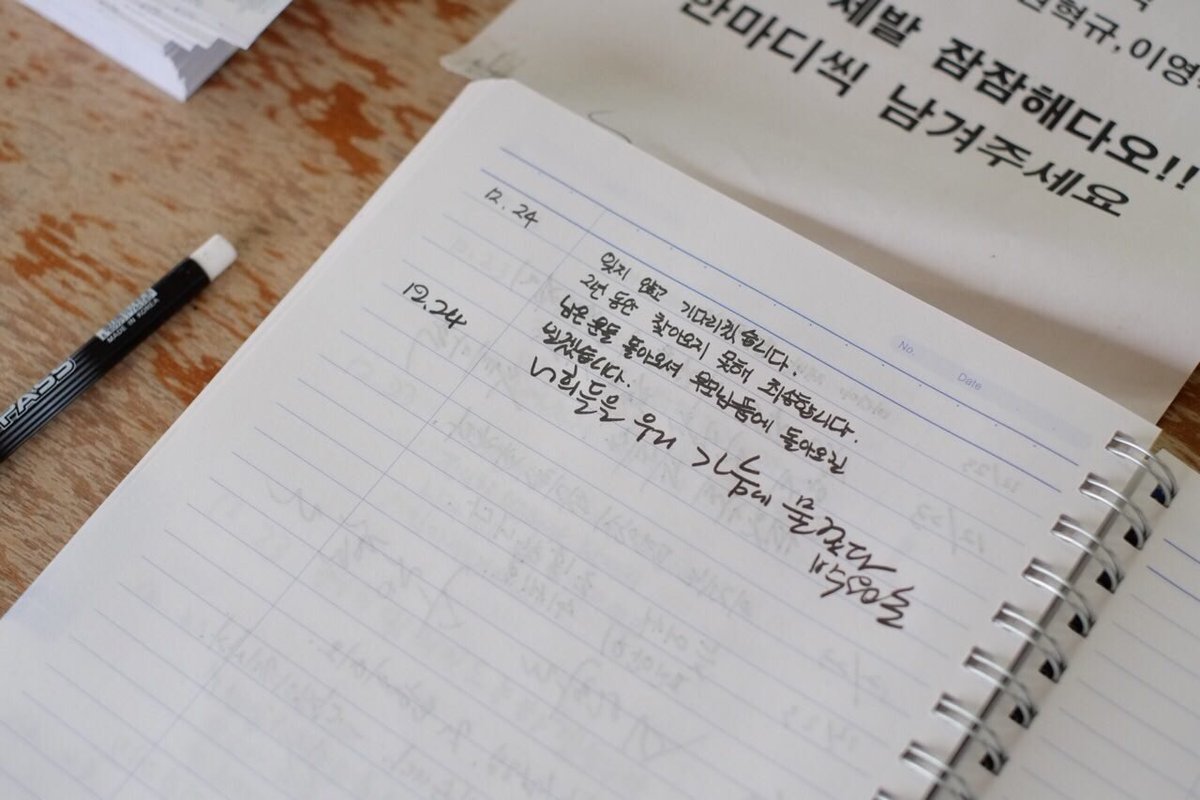 혁규,이영
제발 잠잠해다오!!
한마디씩 남겨주세요
No.
Date
12. 24
잊지 않고 기다리겠습니다.
2년 동안 찾아오지 못해 죄송합니다.
남은 분들 돌아오셔 돌아오길
빌겠습니다.
12.24
너희들을 우리 가슴에
MADE IN KOREA